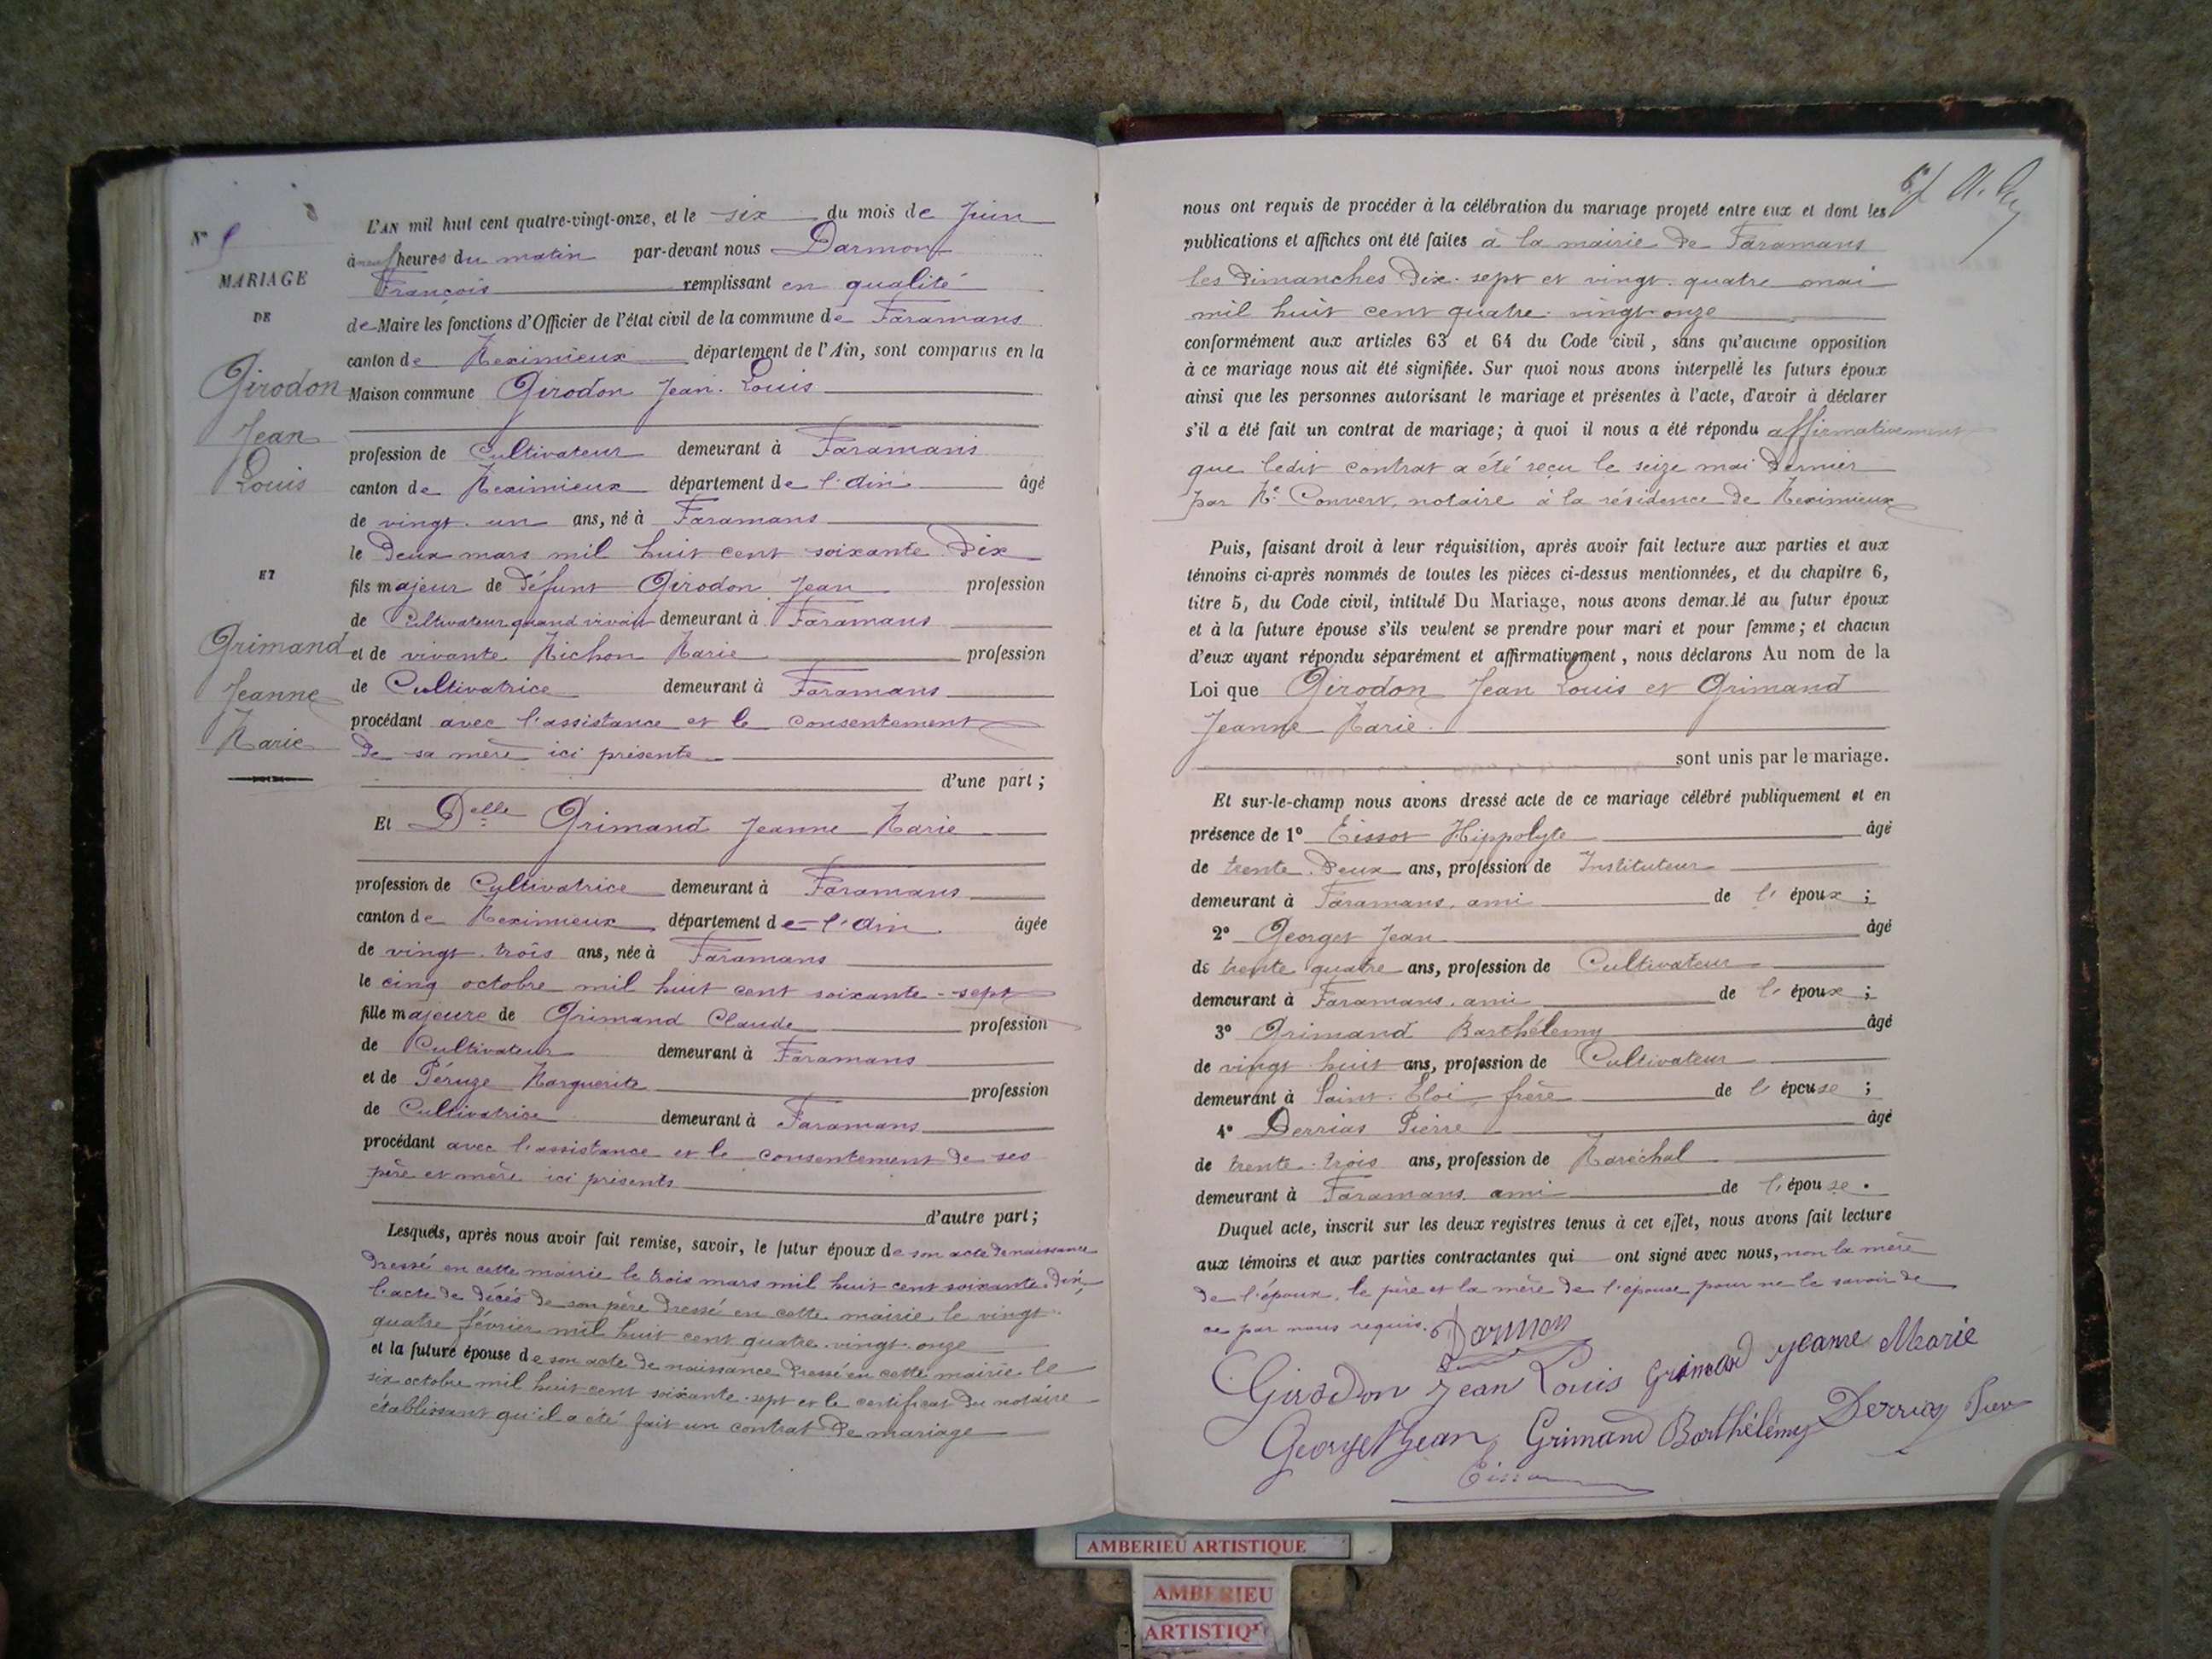 N°
MARIAGE
DE
Girodon
Jean
Louis
ET
Grimand
Jeanne
Marie
L'AN mil huit cent quatre-vingt-onze, et le six du mois de Juin
à neuf heures du matin par-devant nous Darmon
François remplissant en qualité
de Maire les fonctions d'Officier de l'état civil de la commune de Faramans
canton de Meximieux département de l'Ain, sont comparus en la
Maison commune Girodon Jean-Louis
profession de Cultivateur demeurant à Faramans
canton de Meximieux département de l'Ain âgé
de vingt-un ans, né à Faramans
le deux mars mil huit cent soixante-dix
fils majeur de défunt Girodon Jean profession
de Cultivateur quand vivait demeurant à Faramans
et de vivante Michon Marie profession
de Cultivatrice demeurant à Faramans
procédant avec l'assistance et le consentement
de sa mère ici présente
d'une part ;
Et Delle Grimand Jeanne Marie
profession de Cultivatrice demeurant à Faramans
canton de Meximieux département de l'Ain âgée
de vingt-trois ans, née à Faramans
le cinq octobre mil huit cent soixante-sept
fille majeure de Grimand Claude profession
de Cultivateur demeurant à Faramans
et de Péruze Marguerite profession
de Cultivatrice demeurant à Faramans
procédant avec l'assistance et le consentement de ses
père et mère ici présents
d'autre part ;
Lesquels, après nous avoir fait remise, savoir, le futur époux de son acte de naissance
dressé en cette mairie le trois mars mil huit cent soixante-dix,
l'acte de décès de son père dressé en cette mairie le vingt-
quatre février mil huit cent quatre-vingt-onze
et la future épouse de son acte de naissance dressé en cette mairie le
six octobre mil huit cent soixante-sept et le certificat du notaire
établissant qu'il a été fait un contrat de mariage
nous ont requis de procéder à la célébration du mariage projeté entre eux et dont les
publications et affiches ont été faites à la mairie de Faramans
les dimanches dix-sept et vingt-quatre mai
mil huit cent quatre-vingt-onze
conformément aux articles 63 et 64 du Code civil, sans qu'aucune opposition
à ce mariage nous ait été signifiée. Sur quoi nous avons interpellé les futurs époux
ainsi que les personnes autorisant le mariage et présentes à l'acte, d'avoir à déclarer
s'il a été fait un contrat de mariage ; à quoi il nous a été répondu affirmativement
que ledit contrat a été reçu le seize mai dernier
par Me Convert, notaire à la résidence de Meximieux
Puis, faisant droit à leur réquisition, après avoir fait lecture aux parties et aux
témoins ci-après nommés de toutes les pièces ci-dessus mentionnées, et du chapitre 6,
titre 5, du Code civil, intitulé Du Mariage, nous avons demandé au futur époux
et à la future épouse s'ils veulent se prendre pour mari et pour femme ; et chacun
d'eux ayant répondu séparément et affirmativement, nous déclarons Au nom de la
Loi que Girodon Jean Louis et Grimand
Jeanne Marie
sont unis par le mariage.
Et sur-le-champ nous avons dressé acte de ce mariage célébré publiquement et en
présence de 1° Eissot Hippolyte âgé
de trente-deux ans, profession de Instituteur
demeurant à Faramans, ami de l'époux ;
2° Georget Jean âgé
de trente quatre ans, profession de Cultivateur
demeurant à Faramans, ami de l'époux ;
3° Grimand Barthélemy âgé
de vingt-huit ans, profession de Cultivateur
demeurant à Saint-Eloi frère de l'épouse ;
4° Derrias Pierre âgé
de trente-trois ans, profession de Maréchal
demeurant à Faramans ami de l'épouse.
Duquel acte, inscrit sur les deux registres tenus à cet effet, nous avons fait lecture
aux témoins et aux parties contractantes qui ont signé avec nous, non la mère
de l'époux, le père et la mère de l'épouse pour ne le savoir de
ce par nous requis. Darmon
Girodon Jean Louis Grimand Jeanne Marie
Georget Jean Grimand Barthélémy Derrias
AMBERIEU ARTISTIQUE
AMBERIEU
ARTISTIQ